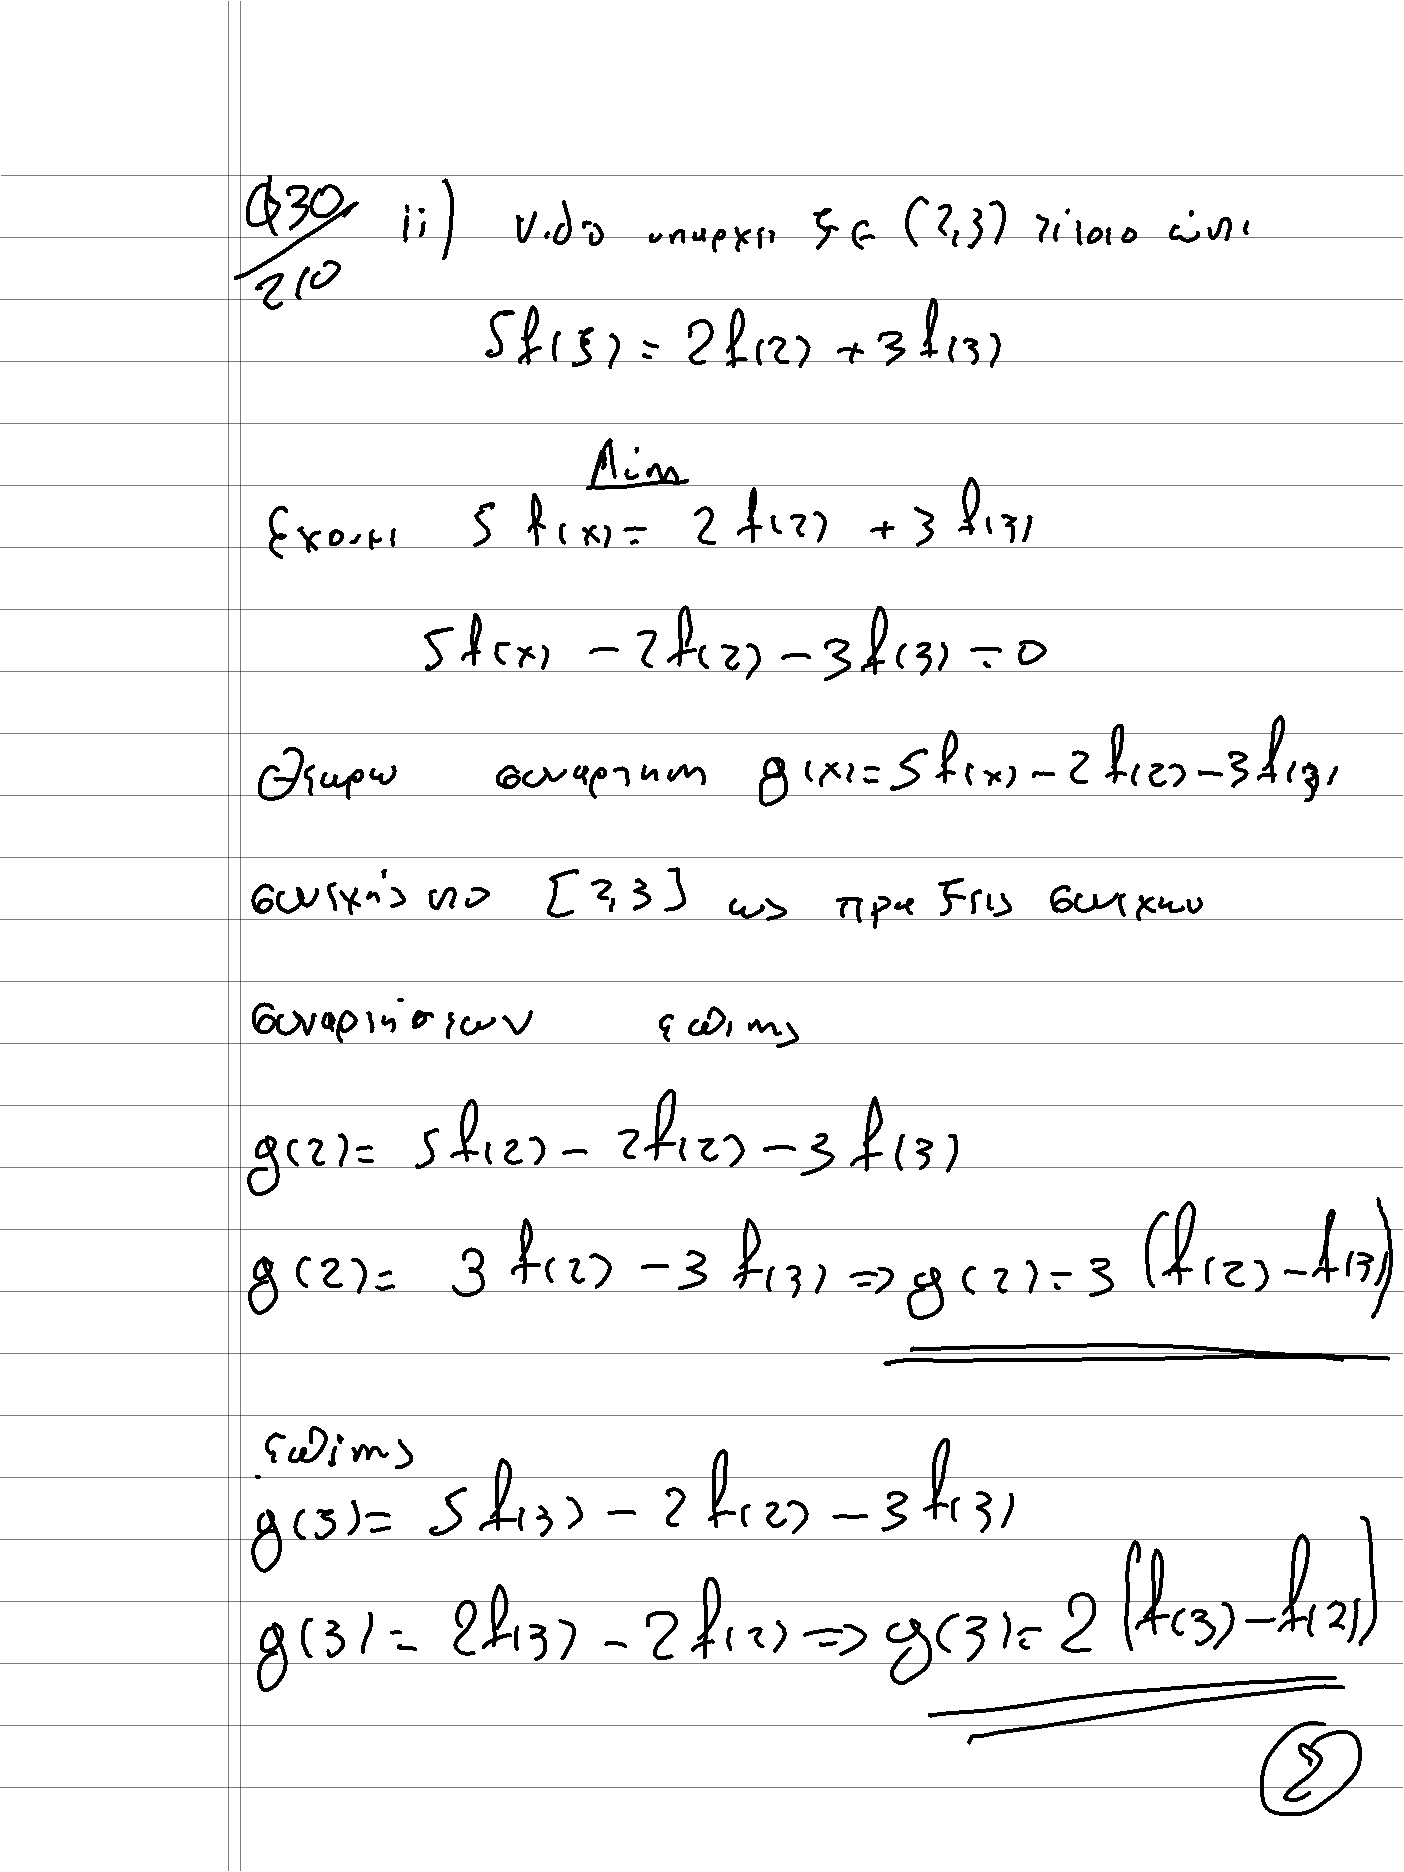 Φ30/210 ii) ν.δο υπαρχει ξ ∈ (2,3) τέτοιο ώστε
5f(ξ) = 2f(2) + 3f(3)
Λύση
Εχουμε 5f(x) = 2f(2) + 3f(3)
5f(x) - 2f(2) - 3f(3) = 0
Θεωρω συναρτηση g(x) = 5f(x) - 2f(2) - 3f(3)
συνεχής στο [2,3] ως πραξεις συνεχων
συναρτήσεων επίσης
g(2) = 5f(2) - 2f(2) - 3f(3)
g(2) = 3f(2) - 3f(3) => g(2) = 3(f(2) - f(3))
επίσης
g(3) = 5f(3) - 2f(2) - 3f(3)
g(3) = 2f(3) - 2f(2) => g(3) = 2(f(3) - f(2))
2